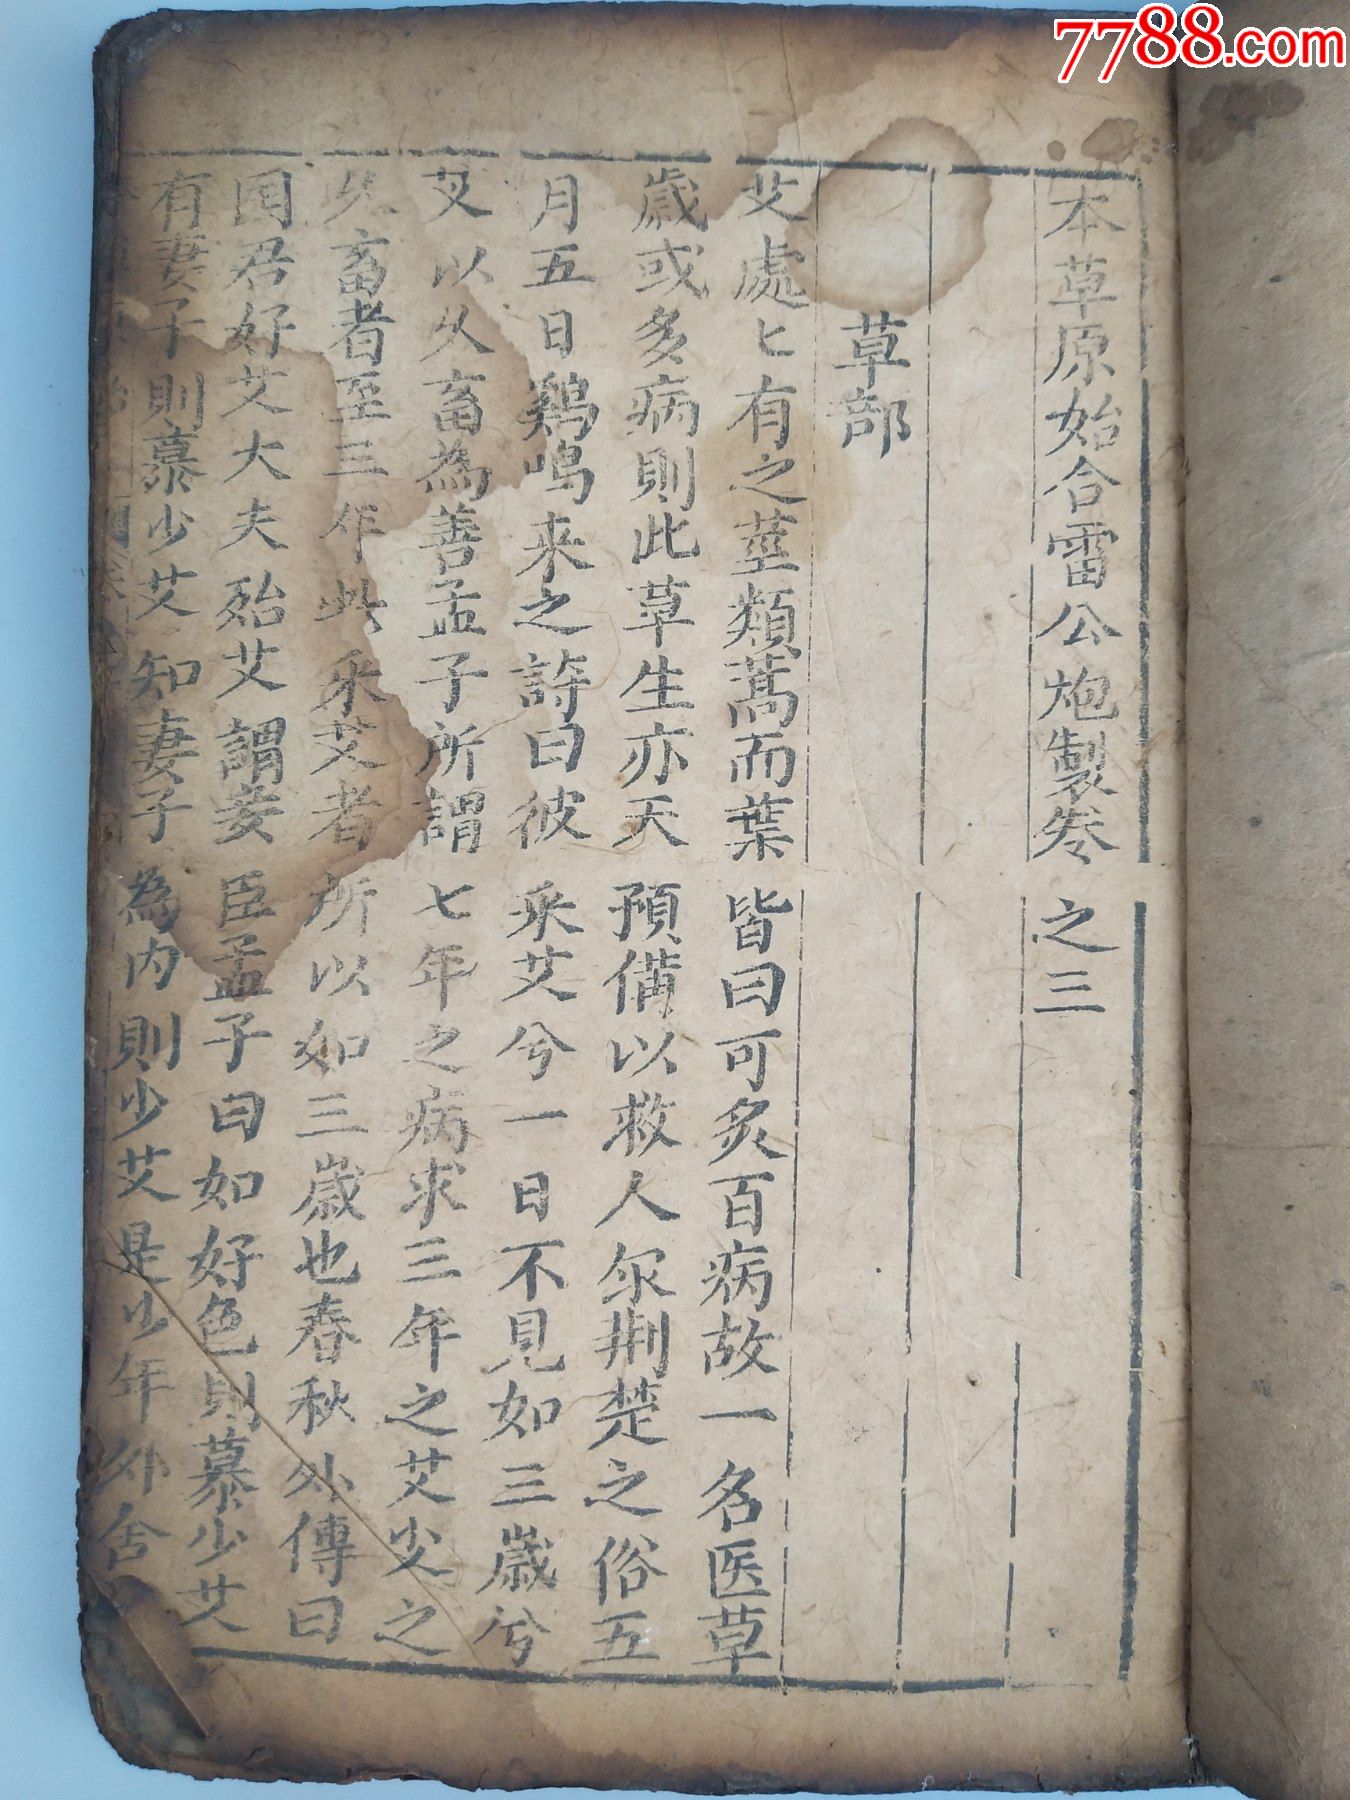 7788.com
本草原始合雷公炮製卷之三
草部
艾處匕有之莖類蒿而葉皆曰可炙百病故一名医草
歲或多病則此草生亦天預備以救人尔荆楚之俗五
月五日鷄鳴来之詩曰彼采艾兮一日不見如三歲兮
艾以久畜為善孟子所謂七年之病求三年之艾尖之
久畜者至三年此采艾者所以如三歲也春秋外傳曰
国君好艾大夫殆艾謂妾臣孟子曰如好色則慕少艾
有妻子則慕少艾知妻子為內則少艾是少年外舍